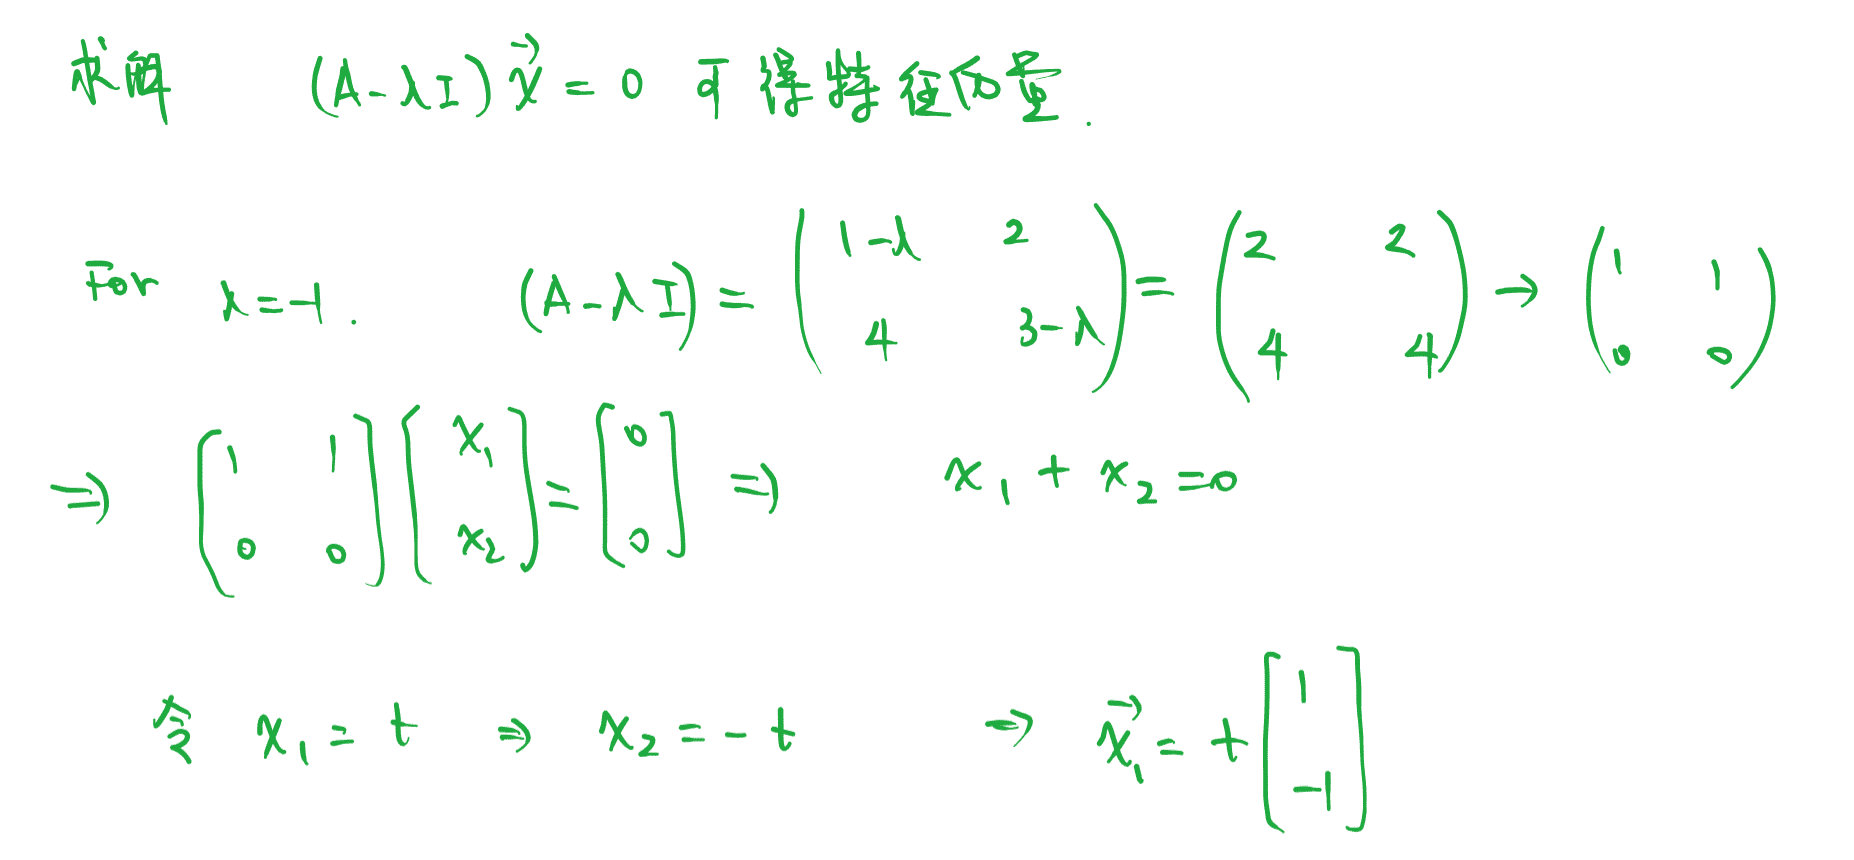 求解 (A-λI)x⃗=0 可得特征向量.
For λ=-1. (A-λI)=(1-λ 2; 4 3-λ)=(2 2; 4 4)→(1 1; 0 0)
⇒ [1 1; 0 0][x₁; x₂]=[0; 0] ⇒ x₁+x₂=0
令 x₁=t ⇒ x₂=-t ⇒ x⃗₁=t[1; -1]